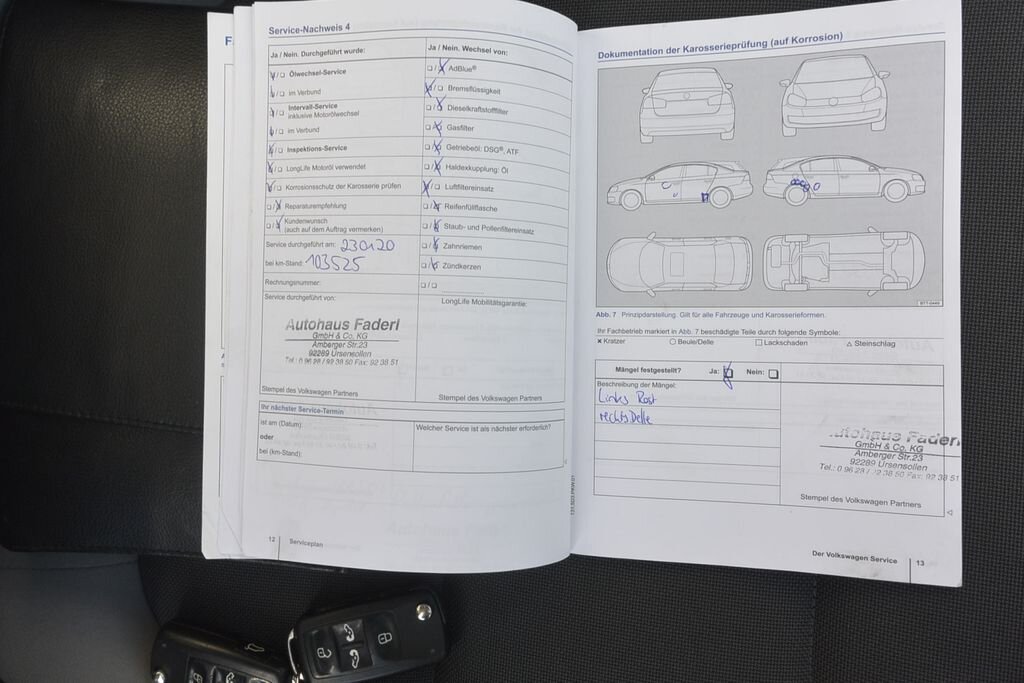 Service-Nachweis 4
Ja / Nein. Durchgeführt wurde:
Ölwechsel-Service
im Verbund
Intervall-Service
inklusive Motorölwechsel
im Verbund
Inspektions-Service
LongLife Motoröl verwendet
Korrosionsschutz der Karosserie prüfen
Reparaturempfehlung
Kundenwunsch
(auch auf dem Auftrag vermerken)
Service durchgeführt am: 230120
bei km-Stand: 103525
Rechnungsnummer:
Service durchgeführt von:
Autohaus Faderl
GmbH & Co. KG
Amberger Str.23
92289 Ursensollen
Tel.: 0 96 28 / 92 38 50 Fax: 92 38 51
Stempel des Volkswagen Partners
Ja / Nein. Wechsel von:
AdBlue®
Bremsflüssigkeit
Dieselkraftstofffilter
Gasfilter
Getriebeöl: DSG®, ATF
Haldexkupplung: Öl
Luftfiltereinsatz
Reifenfüllflasche
Staub- und Pollenfiltereinsatz
Zahnriemen
Zündkerzen
LongLife Mobilitätsgarantie:
Stempel des Volkswagen Partners
Ihr nächster Service-Termin
ist am (Datum):
oder
bei (km-Stand):
Welcher Service ist als nächster erforderlich?
12 Serviceplan
Dokumentation der Karosserieprüfung (auf Korrosion)
Abb. 7 Prinzipdarstellung. Gilt für alle Fahrzeuge und Karosserieformen.
Ihr Fachbetrieb markiert in Abb. 7 beschädigte Teile durch folgende Symbole:
× Kratzer ○ Beule/Delle □ Lackschaden △ Steinschlag
Mängel festgestellt? Ja: Nein:
Beschreibung der Mängel:
Links Rost
rechts Delle
Autohaus Faderl
GmbH & Co. KG
Amberger Str.23
92289 Ursensollen
Tel.: 0 96 28 / 92 38 50 Fax: 92 38 51
Stempel des Volkswagen Partners
Der Volkswagen Service 13